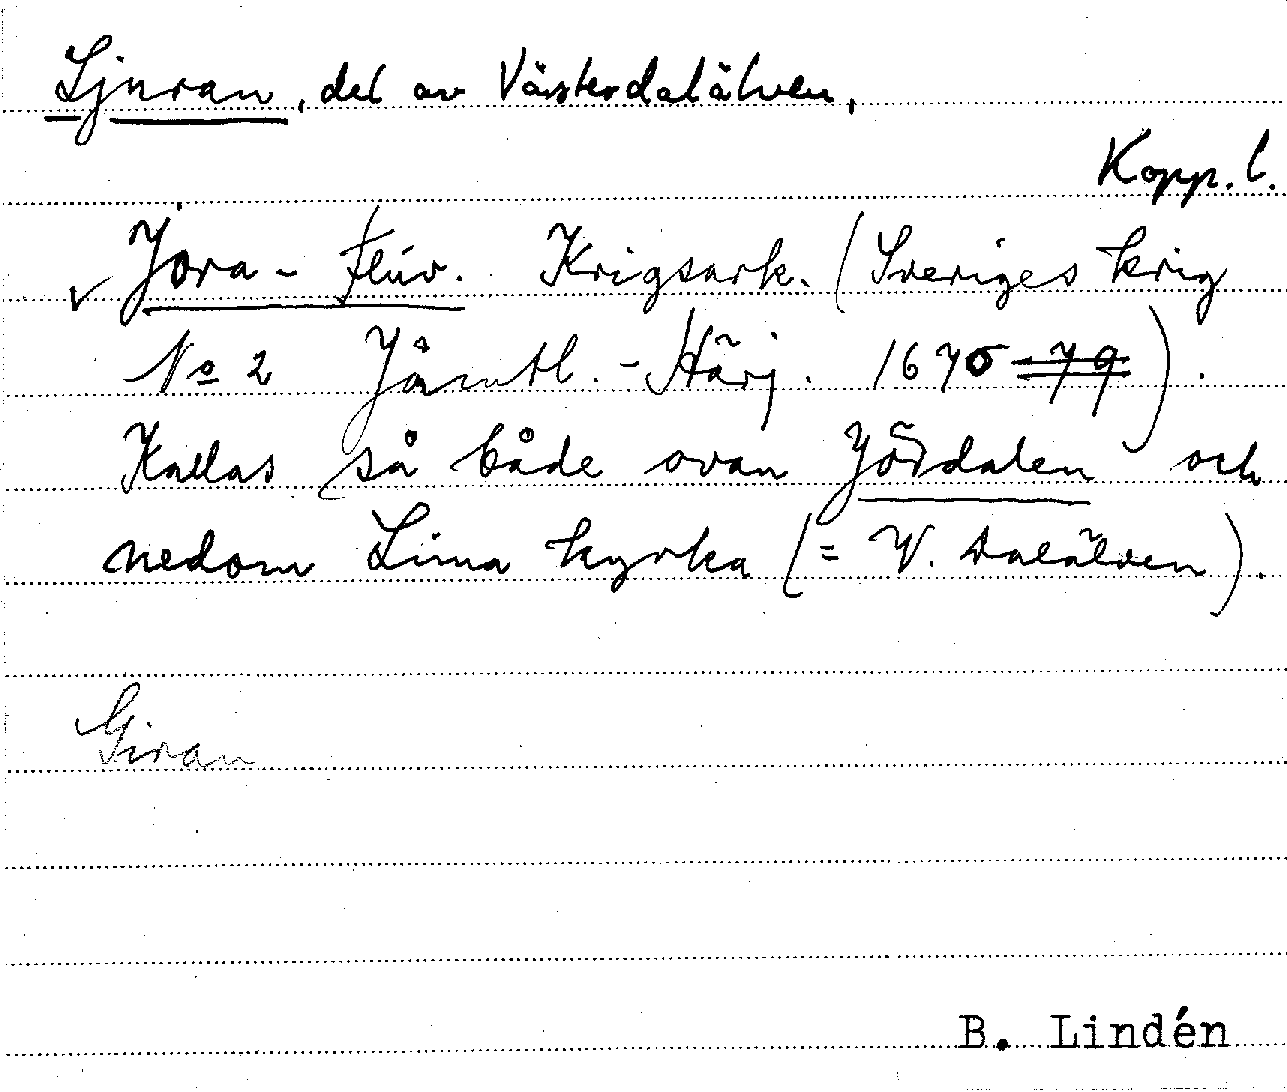 Ljuran, del av Västerdalälven,
Kopp. l.
Jöra - Flúv. Krigsark. (Sveriges krig
No 2 Jämtl. - Härj. 1670 - 79).
Kallas så både ovan Jördalen och
nedom Lima kyrka (= V. Dalälven).
Giran
B. Lindén